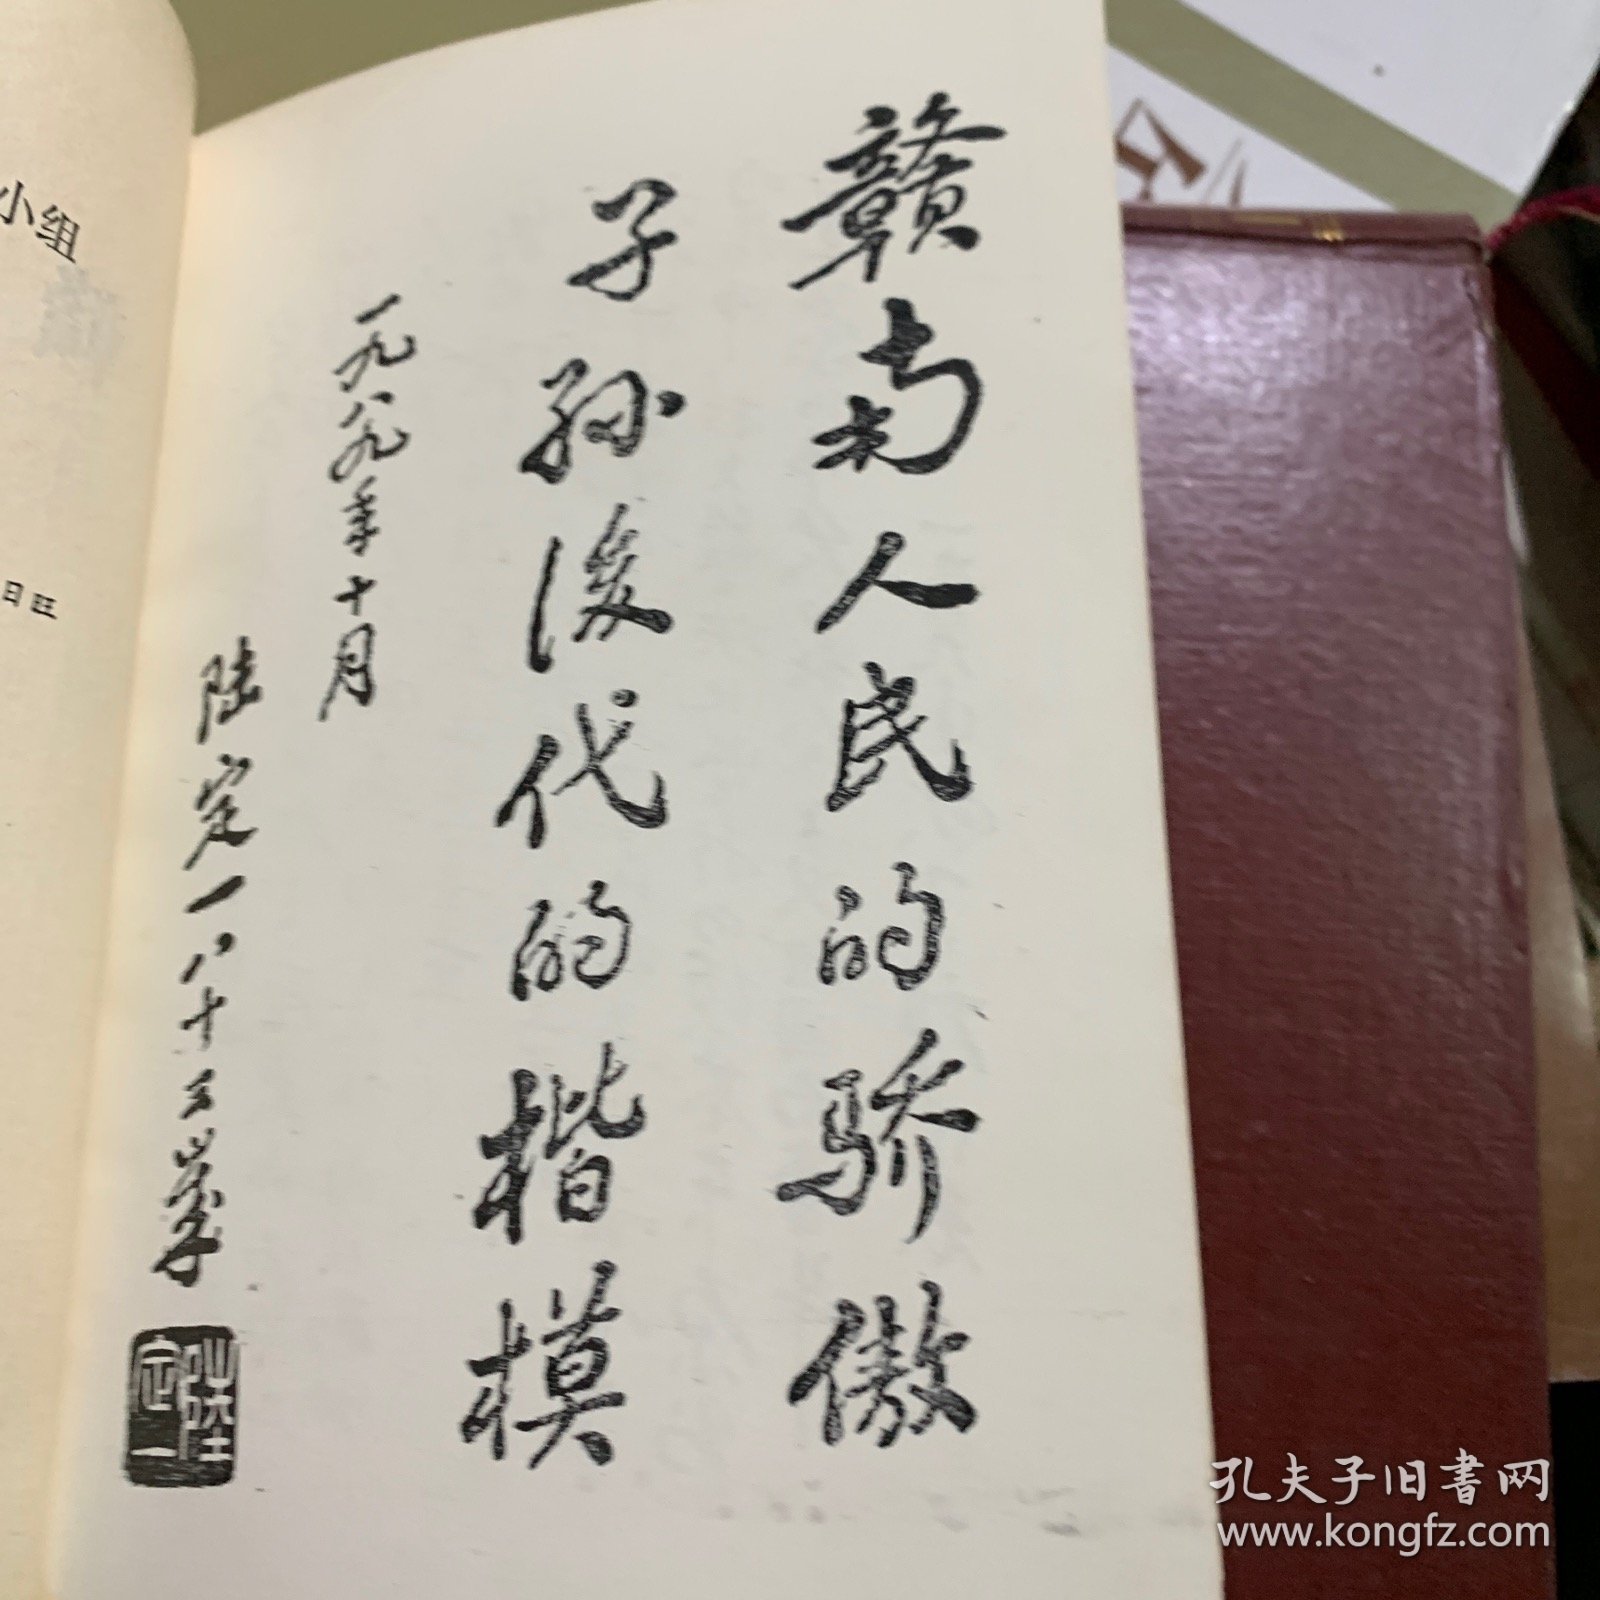 赣南人民的骄傲
子孙后代的楷模
一九八九年十月
陆定一八十三岁
陆定一
小组
日旺
孔夫子旧書网
www.kongfz.com